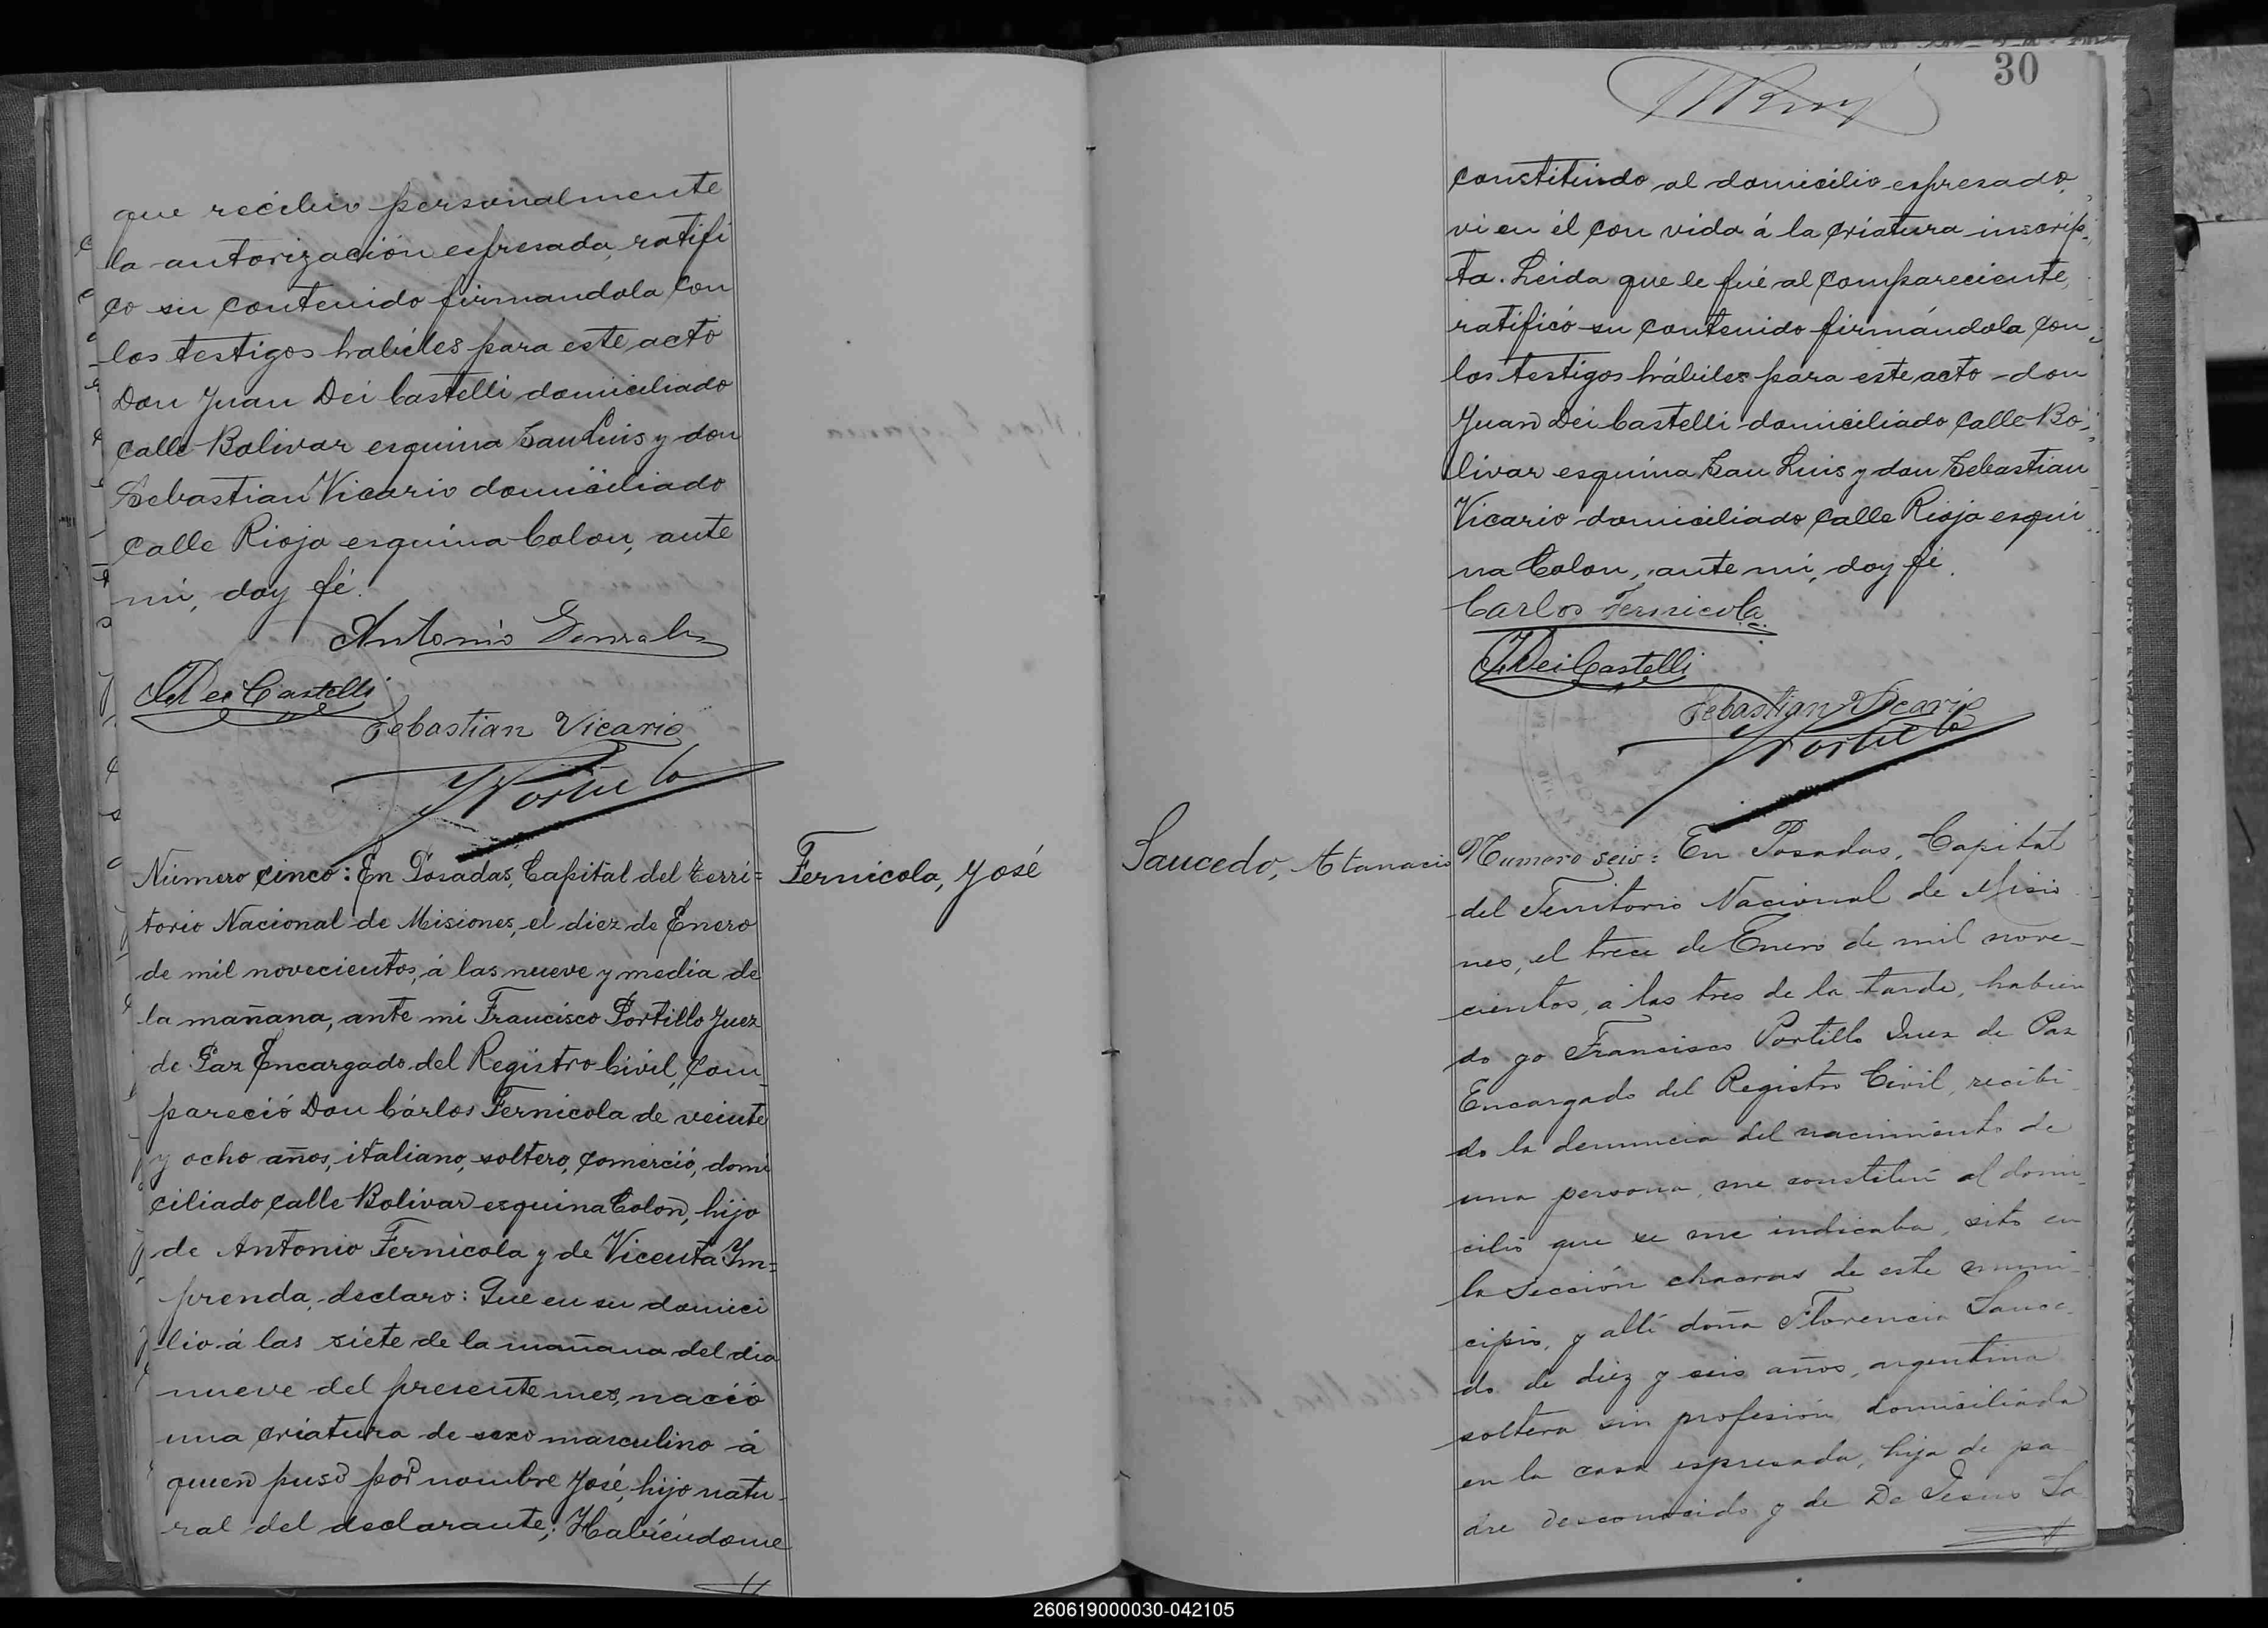 que recibió personalmente
la autorización espresada, ratifi
co su contenido firmandola con
los testigos habiles para este acto
Don Juan Dei Castelli domiciliado
calle Bolivar esquina San Luis y don
Sebastian Vicario domiciliado
calle Rioja esquina Colon, ante
mi, doy fé.
Antonio Gonzalez
J. Dei Castelli
Sebastian Vicario
Número cinco: En Posadas, Capital del Terri=
Fernicola, José
torio Nacional de Misiones, el diez de Enero
de mil novecientos, á las nueve y media de
la mañana, ante mi Francisco Portillo Juez
de Paz Encargado del Registro Civil, com-
pareció Don Cárlos Fernicola de veinte
y ocho años, italiano, soltero, comerció, domi
ciliado calle Bolivar esquina Colon, hijo
de Antonio Fernicola y de Vicenta Im=
prenda, declaro: Que en su domici
lio á las siete de la mañana del dia
nueve del presente mes, nació
una criatura de sexo masculino á
quien puso por nombre José, hijo natu-
ral del declarante; Habiéndome
30
constituido al domicilio espresado,
vi en él con vida á la criatura inscrip-
ta. Leida que le fué al compareciente,
ratificó su contenido firmándola con
los testigos hábiles para este acto don
Juan Dei Castelli domiciliado calle Bo-
livar esquina San Luis y don Sebastian
Vicario domiciliado calle Rioja esqui
na Colon, ante mi, doy fé.
Carlos Fernicola
J. Dei Castelli
Sebastian Vicario
Saucedo, Atanacio
Numero seis: En Posadas, Capital
del Territorio Nacional de Misio
nes, el trece de Enero de mil nove-
cientos, á las tres de la tarde, habien
do yo Francisco Portillo Juez de Paz
Encargado del Registro Civil, recibi
do la denuncia del nacimiento de
una persona, me constituí al domi
cilio que se me indicaba, sito en
la Sección chacras de este muni-
cipio, y allí doña Florencia Sauce
do de diez y seis años, argentina
soltera sin profesión domiciliada
en la casa espresada, hija de pa
dre desconocido y de Da Jesus Sa
260619000030-042105